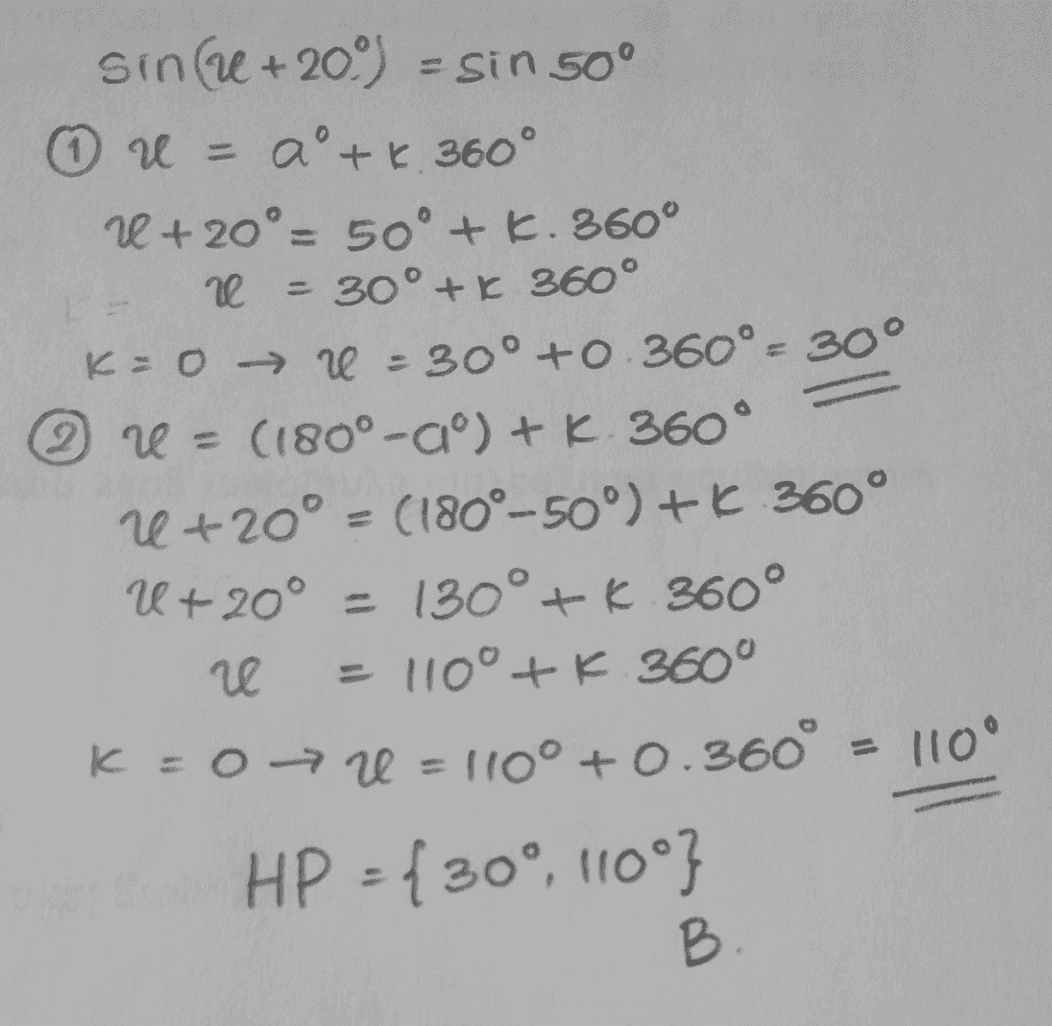 sin(x+20°) = sin 50°
① x = a° + k. 360°
x+20° = 50° + k. 360°
x = 30° + k 360°
k = 0 → x = 30° + 0. 360° = 30°
② x = (180° - a°) + k. 360°
x+20° = (180° - 50°) + k. 360°
x+20° = 130° + k 360°
x = 110° + k. 360°
k = 0 → x = 110° + 0. 360° = 110°
HP = {30°, 110°}
B.